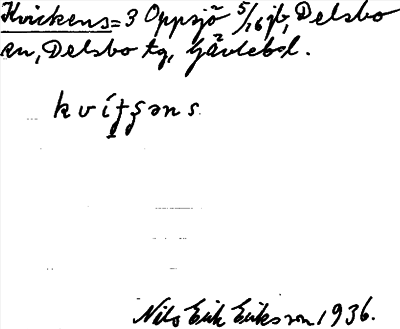 Kvickens = 3 Oppsjö 5/16 jb, Delsbo
sn, Delsbo tg, Gävlebd.
kvítʂəns
Nils Erik Eriksson, 1936.